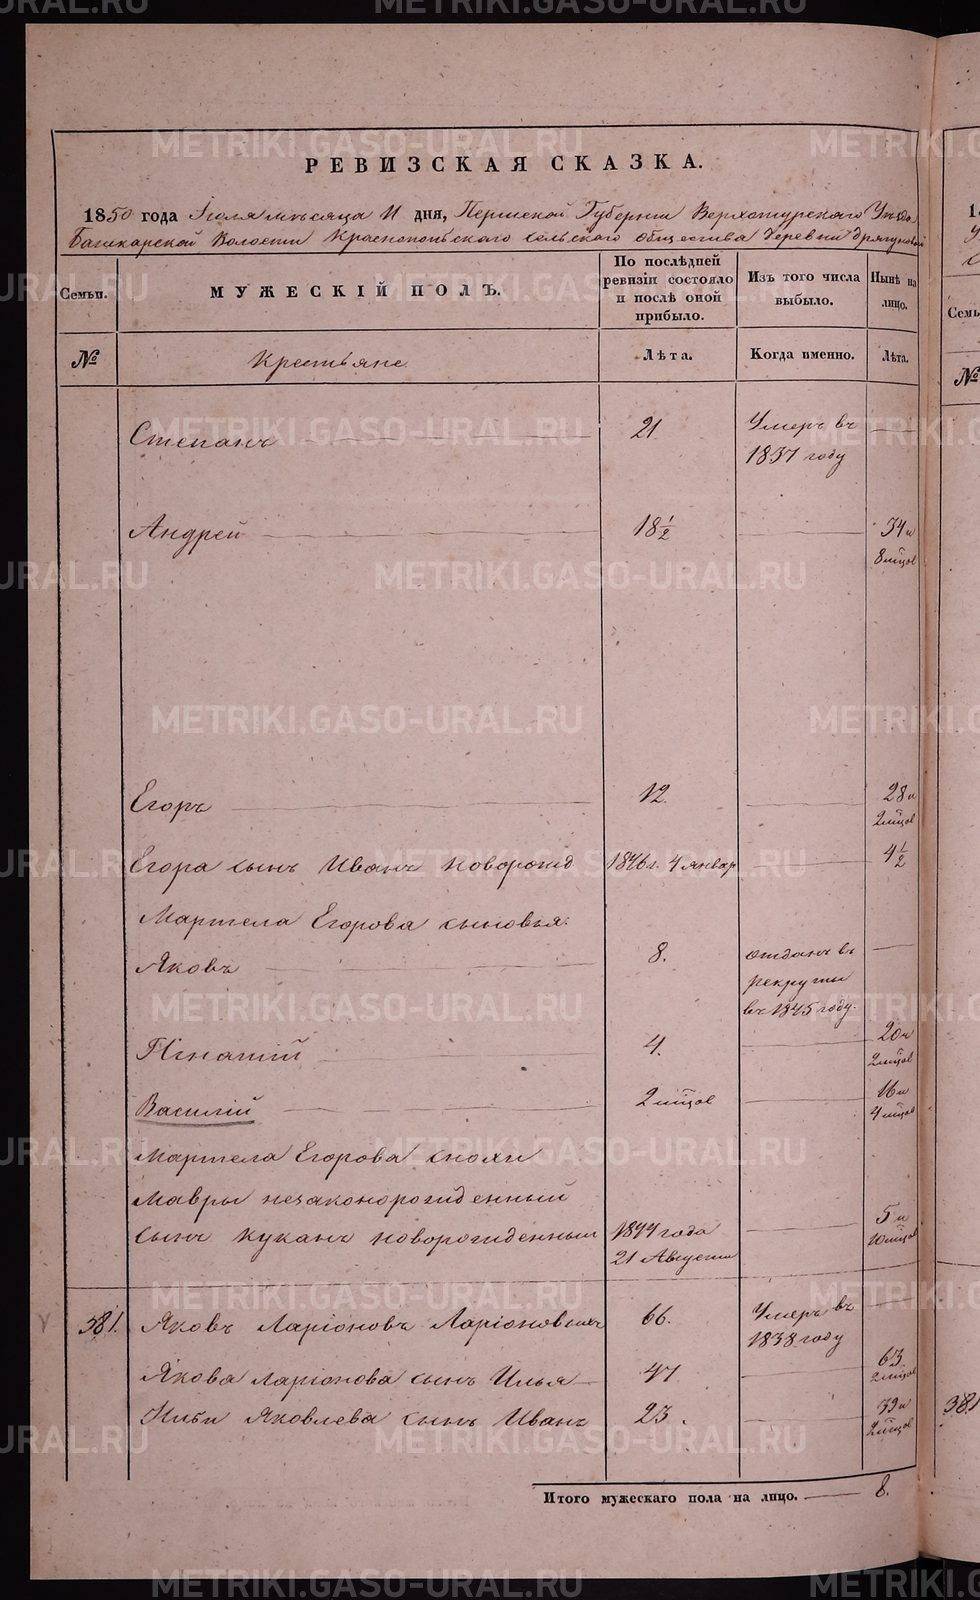 METRIKI.GASO-URAL.RU
РЕВИЗСКАЯ СКАЗКА.
1850 года Іюля мѣсяца 11 дня, Пермской Губерніи Верхотурскаго Уѣзда
Башкарской Волости Краснопольскаго сельскаго общества деревни
Семьи.
МУЖЕСКІЙ ПОЛЪ.
По послѣдней ревизіи состояло и послѣ оной прибыло.
Изъ того числа выбыло.
Нынѣ на лицо.
№
Крестьяне
Лѣта.
Когда именно.
Лѣта.
Степанъ 21 Умеръ въ
1837 году
Андрей 18 1/2 34 и
8 мѣсцов
Егоръ 12. 28 и
2 мѣсцов
Егора сынъ Иванъ новорожд 1846 г. 4 январ 4 1/2
Мартела Егорова сыновья:
Яковъ 8. отданъ въ
рекруты
въ 1845 году.
Игнатій 4. 20 и
2 мѣсцов
Василій 2 мѣсцов 16 и
4 мѣсцов
Мартела Егорова снохи
Мавры незаконорожденный
сынъ новорожденный 1844 года 5 и
21 Августа 10 мѣсцов
381. Яковъ Ларіоновъ Ларіоновыхъ 66. Умеръ въ
1838 году
Якова Ларіонова сынъ Илья 47. 63
2 мѣсцов
Ильи Яковлева сынъ Иванъ 23. 39 и
2 мѣсцов
Итого мужескаго пола на лицо. 8.
Семь
№
381